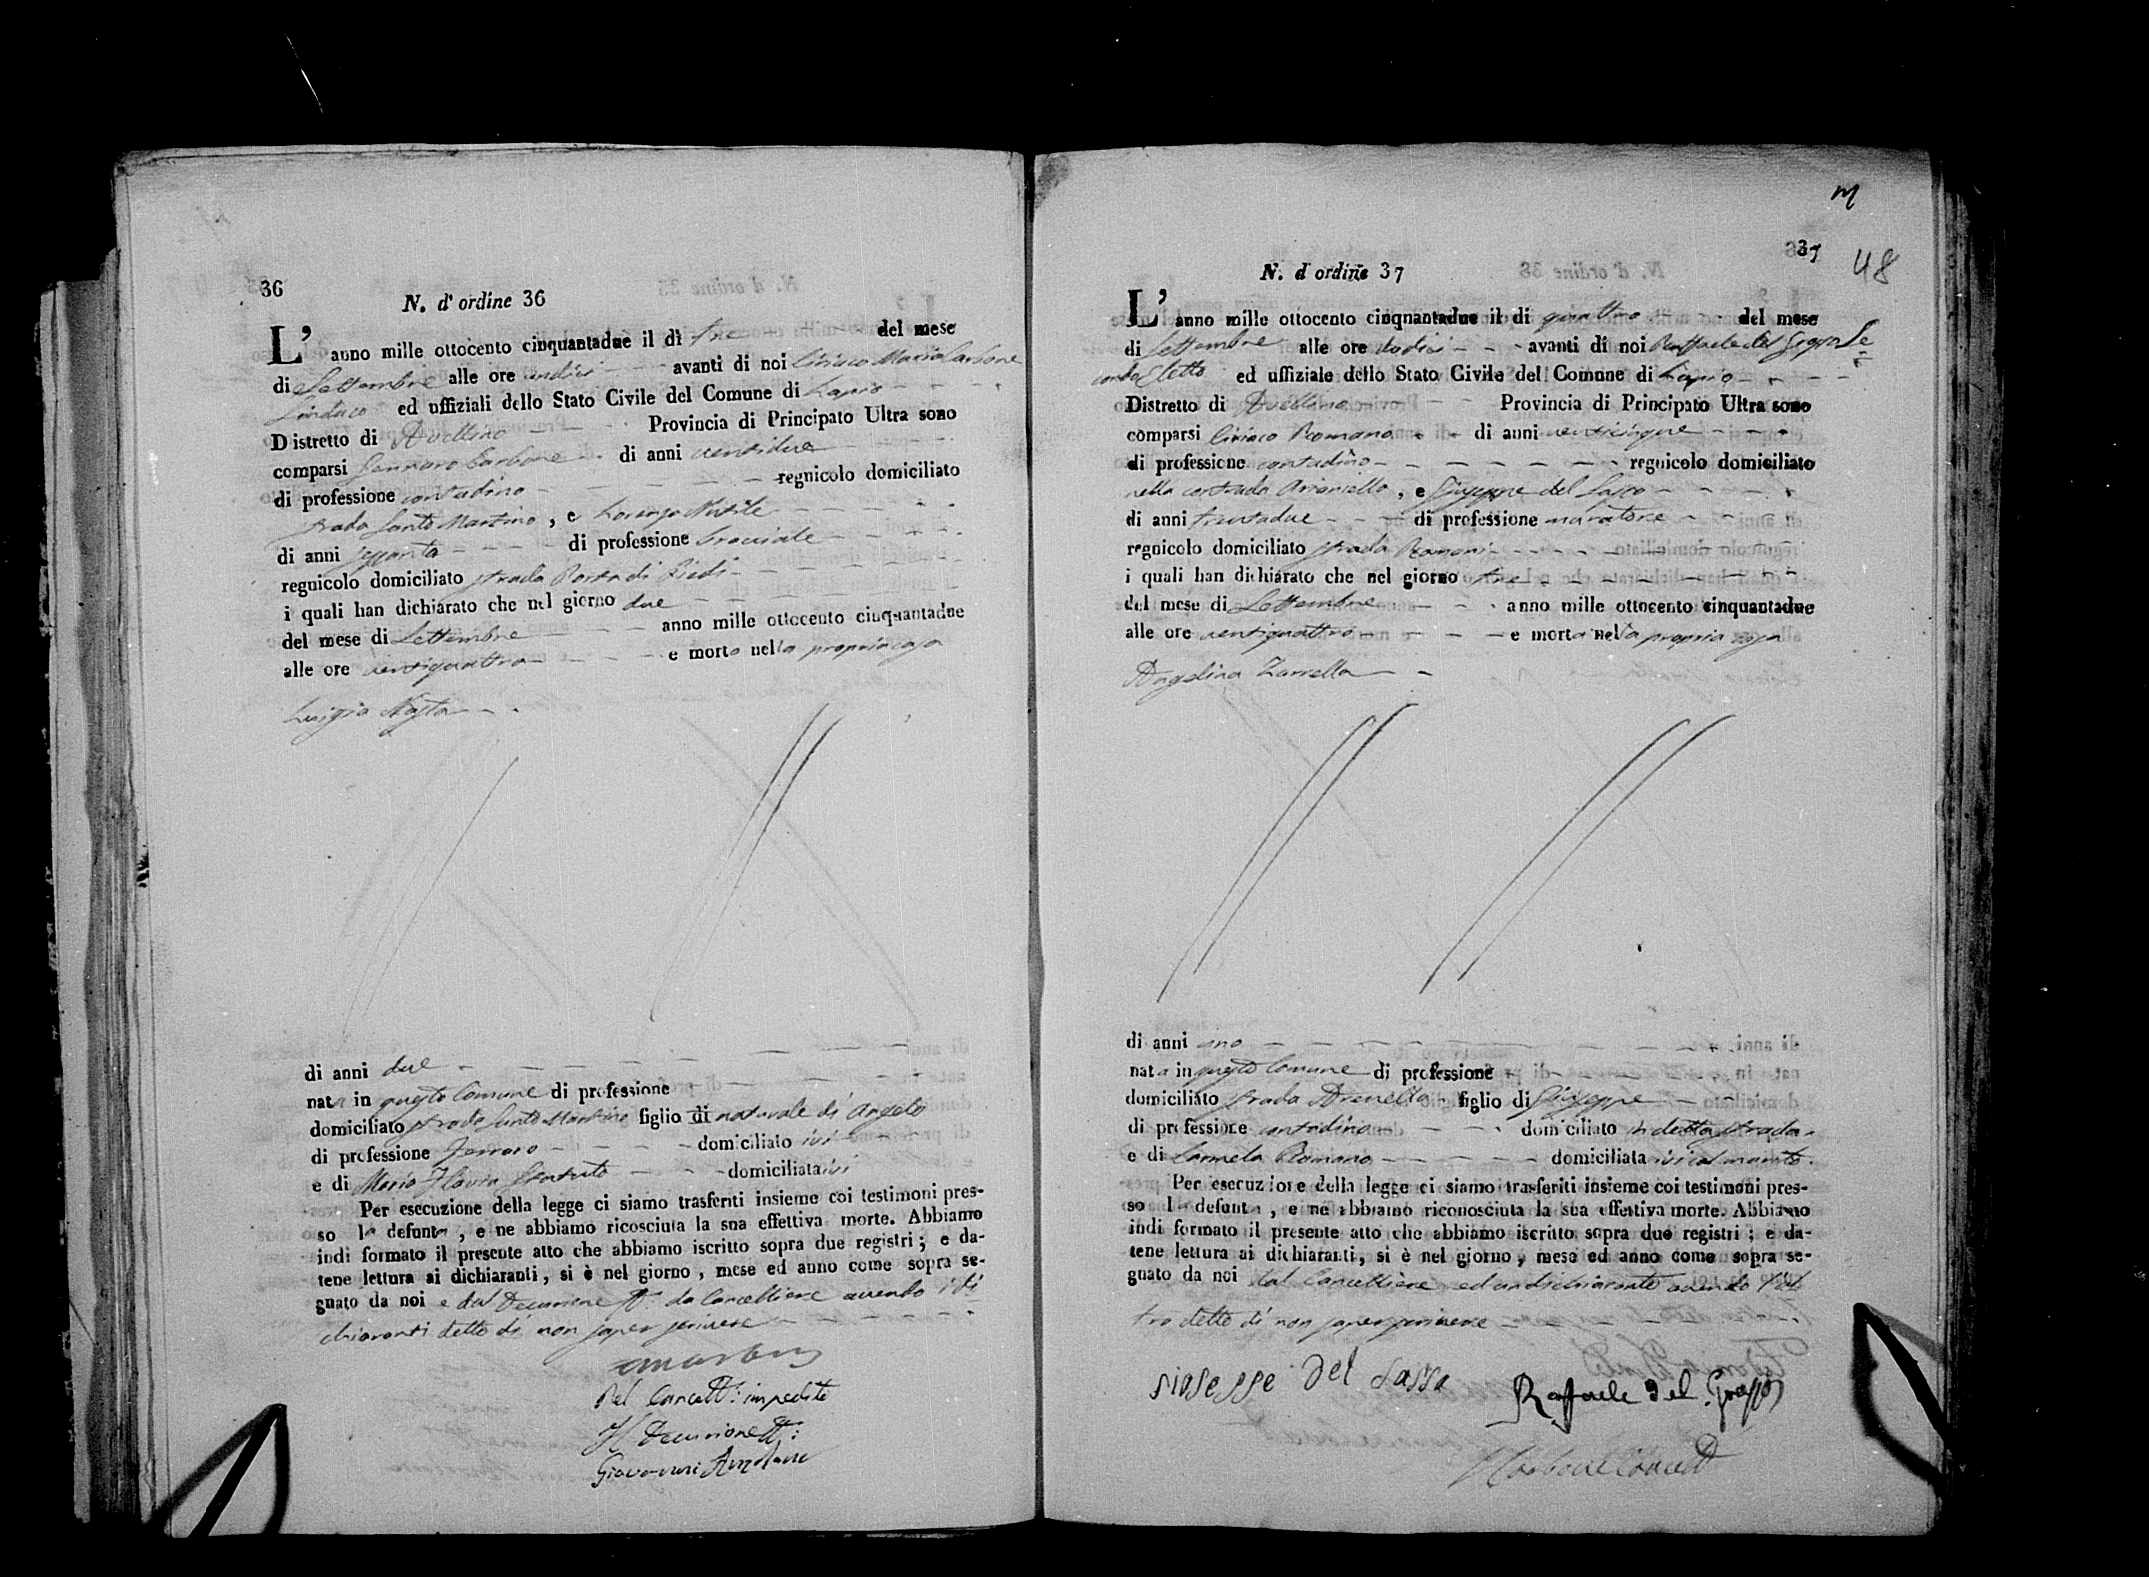 36
N. d'ordine 36
L'anno mille ottocento cinquantadue il dì tre del mese
di Settembre alle ore undici avanti di noi Ciriaco Maria Carbone
Sindaco ed uffiziali dello Stato Civile del Comune di Lapio
Distretto di Avellino Provincia di Principato Ultra sono
comparsi Gennaro Carbone di anni ventidue
di professione contadino regnicolo domiciliato
strada Santo Martino, e Lorenzo
di anni sessanta di professione bracciale
regnicolo domiciliato strada Porta di Piedi
i quali han dichiarato che nel giorno due
del mese di Settembre anno mille ottocento cinquantadue
alle ore ventiquattro e morta nella propria casa
Luigia Nasta
di anni due
nata in questo Comune di professione
domiciliato strada Santo Martino figlio di naturale di Angelo
di professione Ferraro domiciliato ivi
e di Maria Flavia domiciliata ivi
Per esecuzione della legge ci siamo trasferiti insieme coi testimoni pres-
so la defunta, e ne abbiamo ricosciuta la sua effettiva morte. Abbiamo
indi formato il presente atto che abbiamo iscritto sopra due registri; e da-
tene lettura ai dichiaranti, si è nel giorno, mese ed anno come sopra se-
gnato da noi e dal Decurione ff. da Cancelliere avendo i di
chiaranti detto di non saper scrivere
Pel Cancell: impedito
Il Decurione ff:
Giovanni
37
48
N. d'ordine 37
L'anno mille ottocento cinquantadue il dì quattro del mese
di Settembre alle ore dodici avanti di noi Raffaele del Grosso Se
condo Eletto ed uffiziale dello Stato Civile del Comune di Lapio
Distretto di Avellino Provincia di Principato Ultra sono
comparsi Ciriaco Romano di anni venticinque
di professione contadino regnicolo domiciliato
nella contrada Arianiello, e Giuseppe del Sasso
di anni trentadue di professione muratore
regnicolo domiciliato strada Romani
i quali han dichiarato che nel giorno tre
del mese di Settembre anno mille ottocento cinquantadue
alle ore ventiquattro e morta nella propria casa
Angelina Zarrella
di anni uno
nata in questo Comune di professione
domiciliato strada figlio di Giuseppe
di professione contadino domiciliato in detta strada
e di Carmela Romano domiciliata ivi col marito.
Per esecuzione della legge ci siamo trasferiti insieme coi testimoni pres-
so la defunta, e ne abbiamo riconosciuta la sua effettiva morte. Abbiamo
indi formato il presente atto che abbiamo iscritto sopra due registri; e da-
tene lettura ai dichiaranti, si è nel giorno, mese ed anno come sopra se-
gnato da noi dal Cancelliere ed un dichiarante avendo l'al
tro detto di non saper scrivere
giuseppe del sasso
Raffaele del Grosso
Carbone Cancell